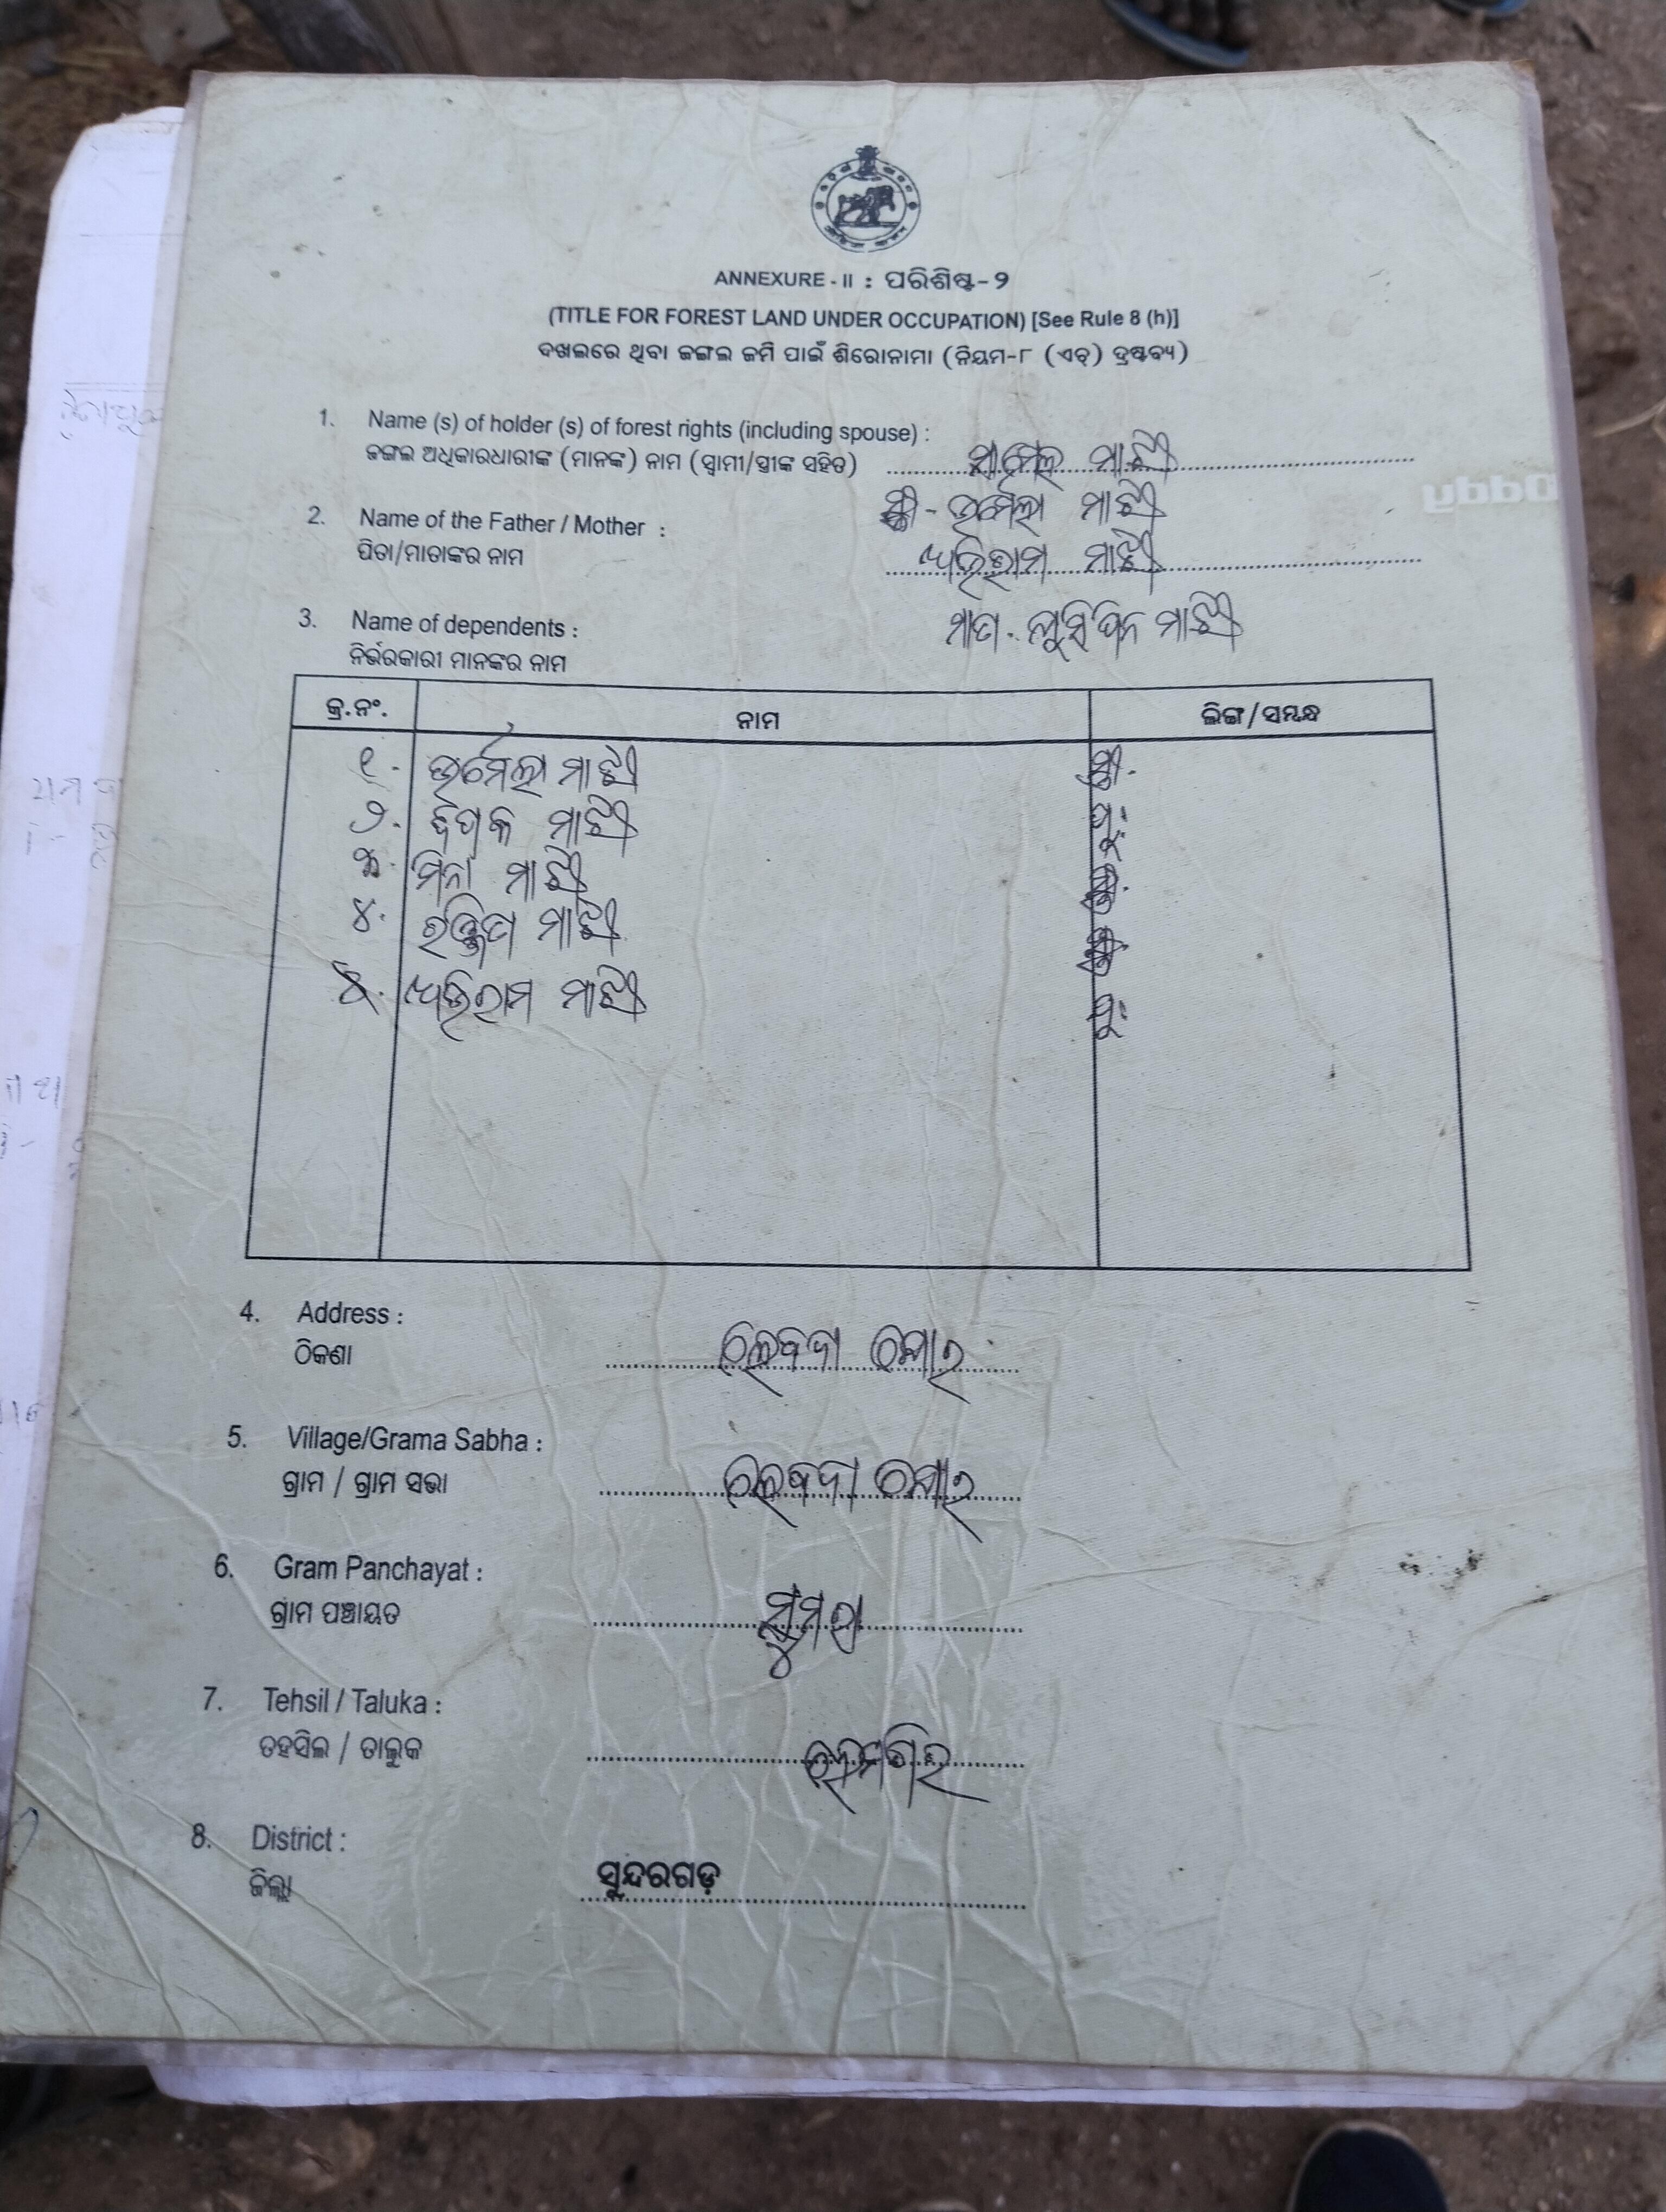 ANNEXURE - II : ପରିଶିଷ୍ଟ-୨
(TITLE FOR FOREST LAND UNDER OCCUPATION) [See Rule 8 (h)]
ଦଖଲରେ ଥିବା ଜଙ୍ଗଲ ଜମି ପାଇଁ ଶିରୋନାମା (ନିୟମ-୮ (ଏଚ୍) ଦ୍ରଷ୍ଟବ୍ୟ)
1. Name (s) of holder (s) of forest rights (including spouse) :
ଜଙ୍ଗଲ ଅଧିକାରଧାରୀଙ୍କ (ମାନଙ୍କ) ନାମ (ସ୍ୱାମୀ/ସ୍ତ୍ରୀଙ୍କ ସହିତ) ମାଝୀ
ସ୍ତ୍ରୀ - ଉର୍ମିଲା ମାଝୀ
2. Name of the Father / Mother :
ପିତା/ମାତାଙ୍କର ନାମ ଅଭିରାମ ମାଝୀ
3. Name of dependents : ମାତା. ମାଝୀ
ନିର୍ଭରକାରୀ ମାନଙ୍କର ନାମ
କ୍ର.ନଂ. ନାମ ଲିଙ୍ଗ/ସମ୍ବନ୍ଧ
୧. ଉର୍ମିଲା ମାଝୀ ସ୍ତ୍ରୀ.
୨. ଦିପକ ମାଝୀ ପୁଂ
୩. ମିନା ମାଝୀ
୪. ରଞ୍ଜିତା ମାଝୀ
୫. ଅଭିରାମ ମାଝୀ ପୁଂ
4. Address :
ଠିକଣା
5. Village/Grama Sabha :
ଗ୍ରାମ / ଗ୍ରାମ ସଭା
6. Gram Panchayat :
ଗ୍ରାମ ପଞ୍ଚାୟତ ସୁମରା
7. Tehsil / Taluka :
ତହସିଲ / ତାଲୁକ ହେମଗିର
8. District :
ଜିଲ୍ଲା ସୁନ୍ଦରଗଡ଼